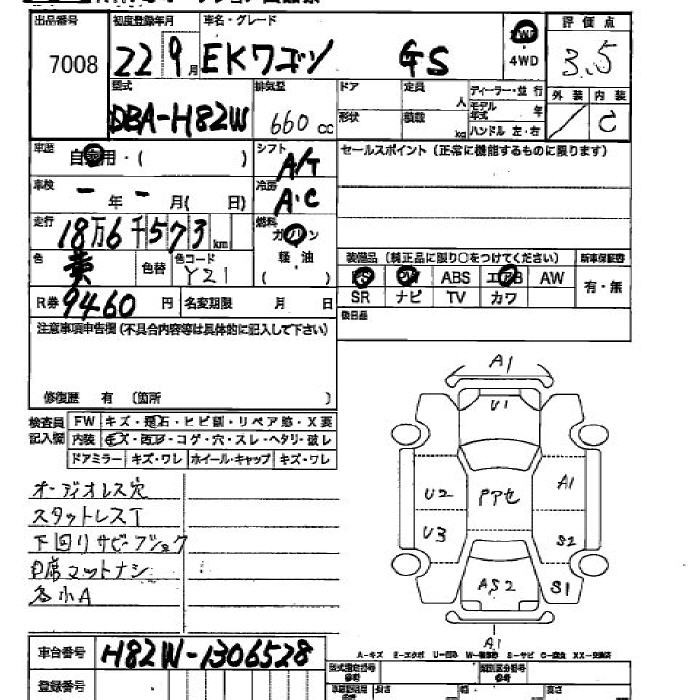 出品番号 初度登録年月 車名・グレード 評価点
7008 22 9月 EKワゴン GS 2WD 4WD 3.5
型式 排気量 ドア 定員 人 ディーラー・並行 外装 内装
DBA-H82W 660cc 形状 積載 kg モデル年式 年 ハンドル 左・右 C
車歴 自家用・( ) シフト A/T セールスポイント (正常に機能するものに限ります)
車検 - 年 - 月( 日) 冷房 A・C
走行 18万6千573km 燃料 ガソリン 軽油 ( )
装備品 (純正品に限り○をつけてください) 新車保証書
色 黄 色替 色コード Y21
PS PW ABS エアB AW 有・無
SR ナビ TV カワ
R券 9460円 名変期限 月 日 後日品
注意事項申告欄(不具合内容等は具体的に記入して下さい)
修復歴 有 (箇所 )
検査員記入欄 FW キズ・飛石・ヒビ割・リペア跡・X要
内装 キズ・コゲ・穴・スレ・ヘタリ・破レ
ドアミラー キズ・ワレ ホイール・キャップ キズ・ワレ
オーディオレス穴
スタットレスT
下回りサビ
マットナシ
各小A
A1
U1
U2 A1
U3 S2
AS2 S1
A1
車台番号 H82W-1306528
登録番号
A-キズ
型式指定番号 類別区分番号
長さ 幅 高さ